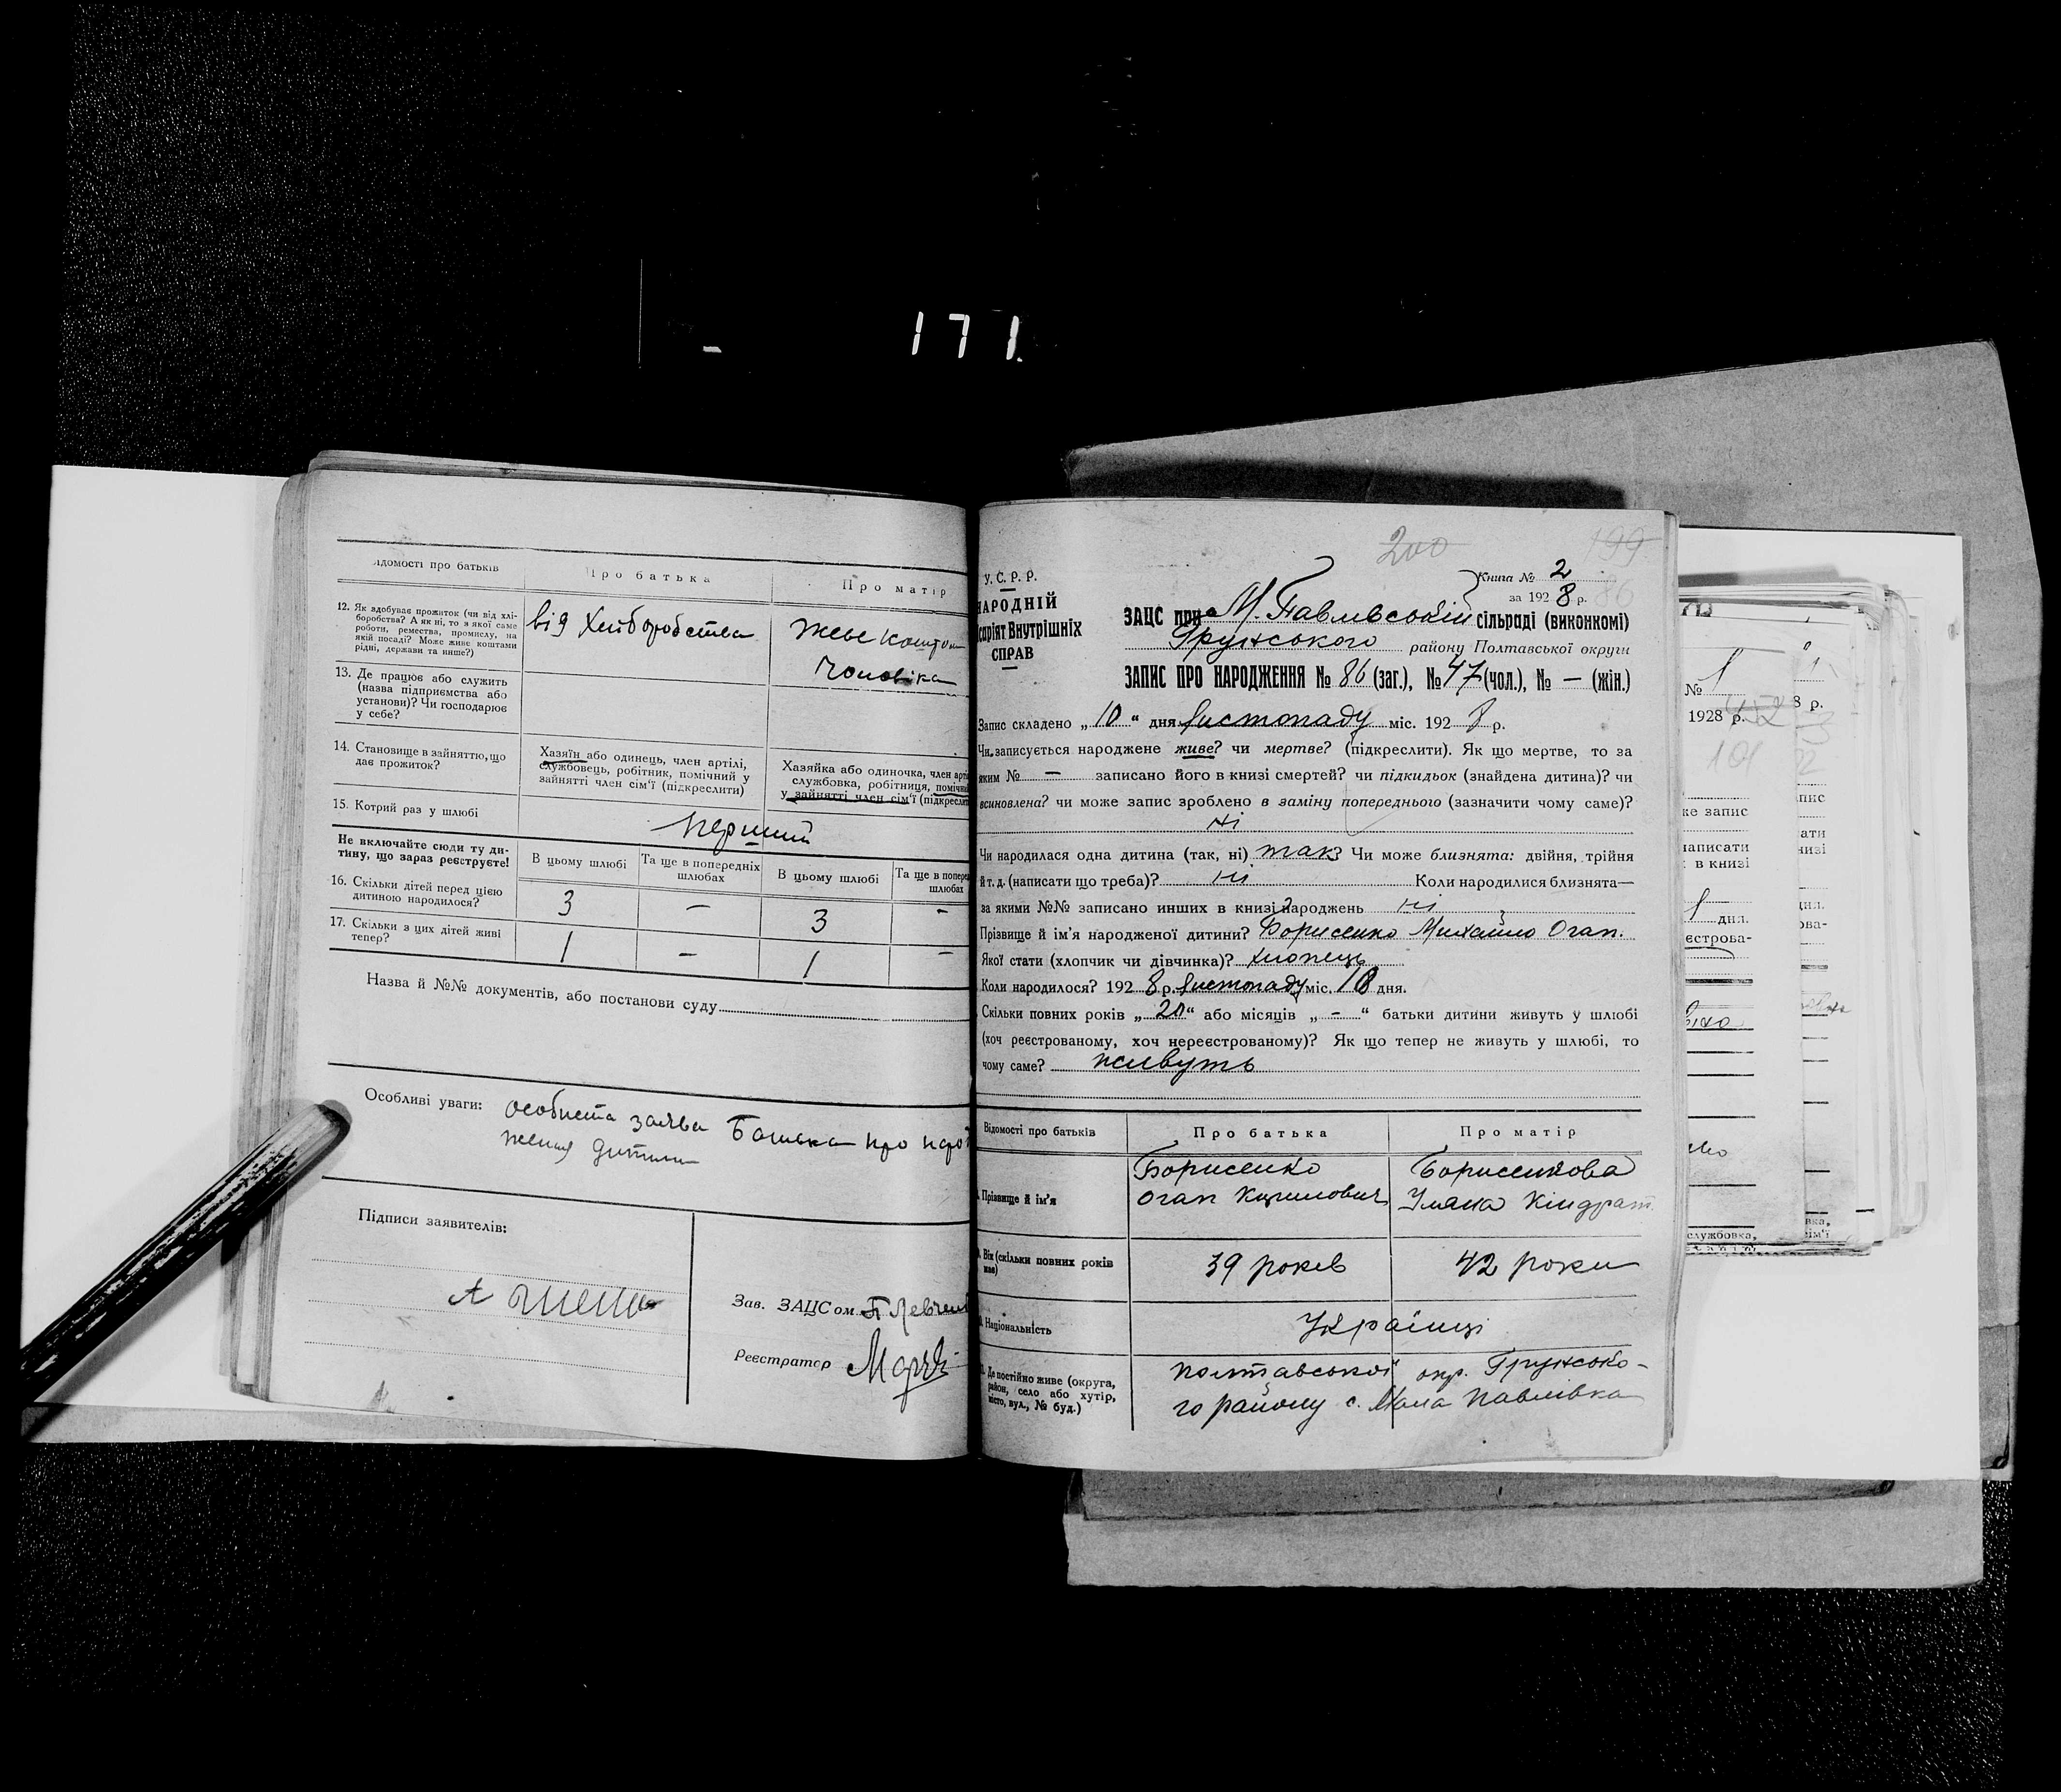 171.
ідомості про батьків
Про батька
Про матір
12. Як здобуває прожиток (чи від хлі-
боробства? А як ні, то з якої саме
роботи, ремества, промислу, на
якій посаді? Може живе коштами
рідні, держави та инше?)
від Хліборобства
живе коштом
чоловіка
13. Де працює або служить
(назва підприємства або
установи)? Чи господарює
у себе?
14. Становище в зайняттю, що
дає прожиток?
Хазяїн або одинець, член артілі,
службовець, робітник, помічний у
зайнятті член сім'ї (підкреслити)
Хазяйка або одиночка, член артіл
службовка, робітниця, помічни
у зайнятті член сім'ї (підкреслит
15. Котрий раз у шлюбі
перший
Не включайте сюди ту ди-
тину, що зараз реєструєте!
В цьому шлюбі
Та ще в попередніх
шлюбах
В цьому шлюбі
Та ще в поперед
шлюбах
16. Скільки дітей перед цією
дитиною народилося?
3 – 3 –
17. Скільки з цих дітей живі
тепер?
1 – 1 –
Назва й №№ документів, або постанови суду
Особливі уваги: особиста заява Батька про народ
ження дитини
Підписи заявителів:
Зав. ЗАЦСом П Левчен
Реєстратор
200 199
У.С.Р.Р.
НАРОДНІЙ
саріят Внутрішніх
СПРАВ
Книга № 2
за 1928 р. 86
ЗАЦС при М. Павлівській сільраді (виконкомі)
Грунського району Полтавської округи
ЗАПИС ПРО НАРОДЖЕННЯ № 86 (заг.), № 47 (чол.), № — (жін.)
Запис складено „10“ дня Листопаду міс. 1928 р.
Чи записується народжене живе? чи мертве? (підкреслити). Як що мертве, то за
яким № — записано його в книзі смертей? чи підкидьок (знайдена дитина)? чи
всиновлена? чи може запис зроблено в заміну попереднього (зазначити чому саме)?
ні
Чи народилася одна дитина (так, ні) так? Чи може близнята: двійня, трійня
й т. д. (написати що треба)? ні Коли народилися близнята—
за якими №№ записано инших в книзі народжень ні
Прізвище й ім'я народженої дитини? Борисенко Михайло Огап.
Якої стати (хлопчик чи дівчинка)? хлопець
Коли народилось? 1928 р. Листопаду міс. 10 дня.
Скільки повних років „20“ або місяців „–“ батьки дитини живуть у шлюбі
(хоч реєстрованому, хоч нереєстрованому)? Як що тепер не живуть у шлюбі, то
чому саме? живуть
Відомості про батьків
Про батька
Про матір
Прізвище й ім'я
Борисенко
Огап
Борисенкова
Уляна Кіндрат.
Вік (скільки повних років
має)
39 років
42 роки
Національність
Українці
Де постійно живе (округа,
район, село або хутір,
місто, вул., № буд.)
Полтавської окр. Грунсько-
го району с. Мала Павлівка
№ 1
1928 р.
8 р.
же запис
написати
в книзі
дня.
єстрова-
службовка,